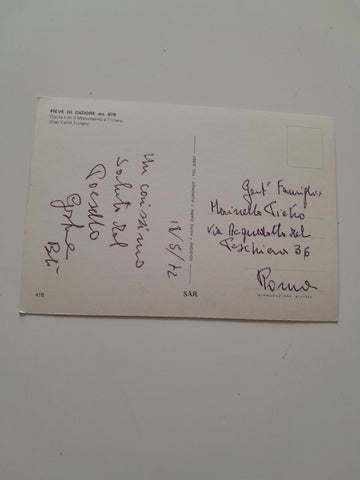 PIEVE DI CADORE m. 878
Piazza con il Monumento a Tiziano
Gran Caffè Tiziano
18/5/72
Un carissimo
saluto dal
EDIZIONI - FOTO CAPRI - AURONZO - TEL.
Gent. Famiglia
Marinello Pietro
via Acquedotto del
Peschiera 36
Roma
418
SAR
RIPRODUZIONE VIETATA